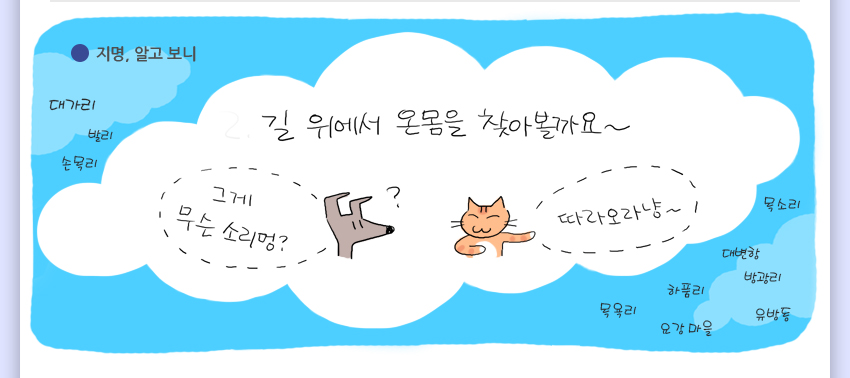 지명, 알고 보니
대가리
발리
손목리
2. 길 위에서 온몸을 찾아볼까요~
그게
무슨 소리멍?
?
따라오라냥~
목소리
대변항
방광리
하품리
목욕리
유방동
요강 마을